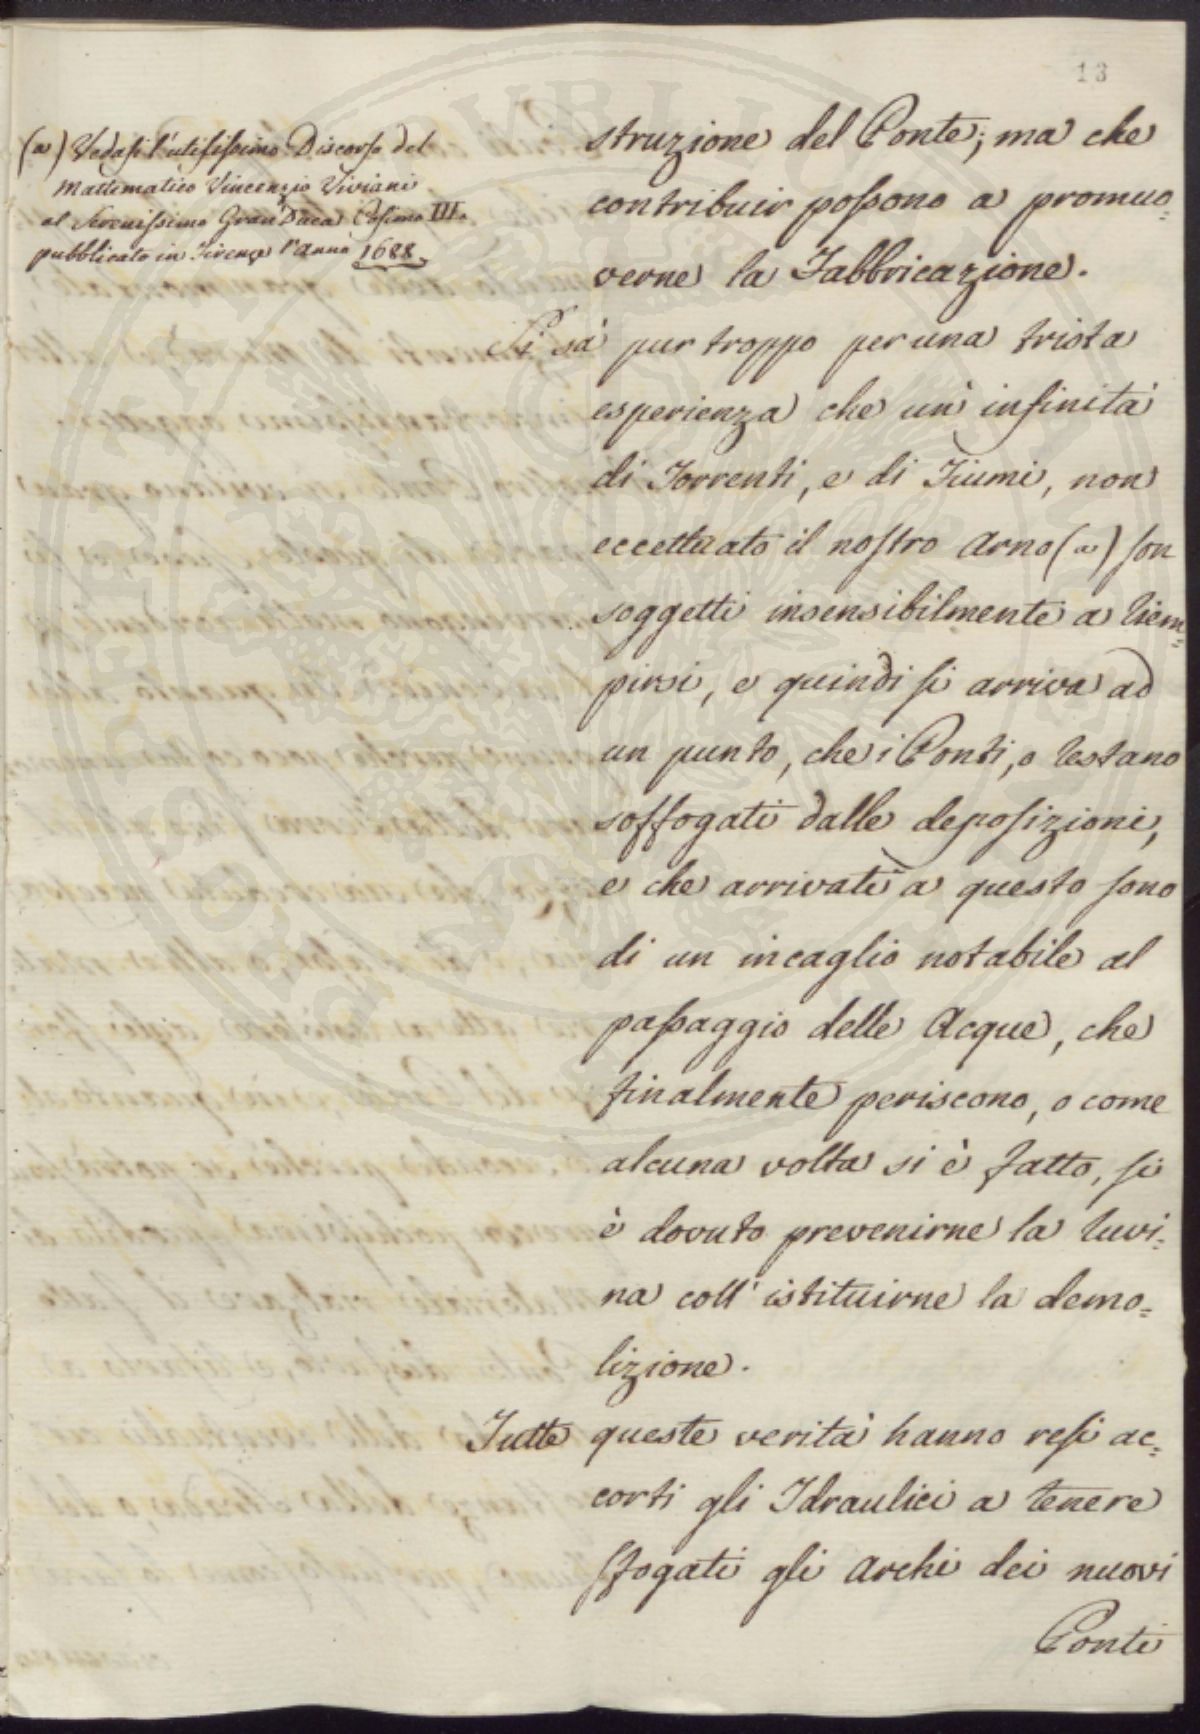 13
(a) Vedasi l'utilissimo Discorso del
Mattematico Vincenzio Viviani
al Serenissimo Gran Duca Cosimo III.
pubblicato in Firenze l'anno 1688.
struzione del Ponte; ma che
contribuir possono a promuo=
verne la Fabbricazione.
Si sà pur troppo per una trista
esperienza che un' infinità
di Torrenti, e di Fiumi, non
eccettuato il nostro Arno (a) son
soggetti insensibilmente a riem=
pirsi, e quindi si arriva ad
un punto, che i Ponti, o restano
soffogati dalle deposizioni,
e che arrivati a questo sono
di un incaglio notabile al
passaggio delle Acque, che
finalmente periscono, o come
alcuna volta si è fatto, si
è dovuto prevenirne la ruvi=
na coll' istituirne la demo=
lizione.
Tutte queste verità hanno resi ac=
corti gli Idraulici a tenere
sfogati gli Archi dei nuovi
Ponti